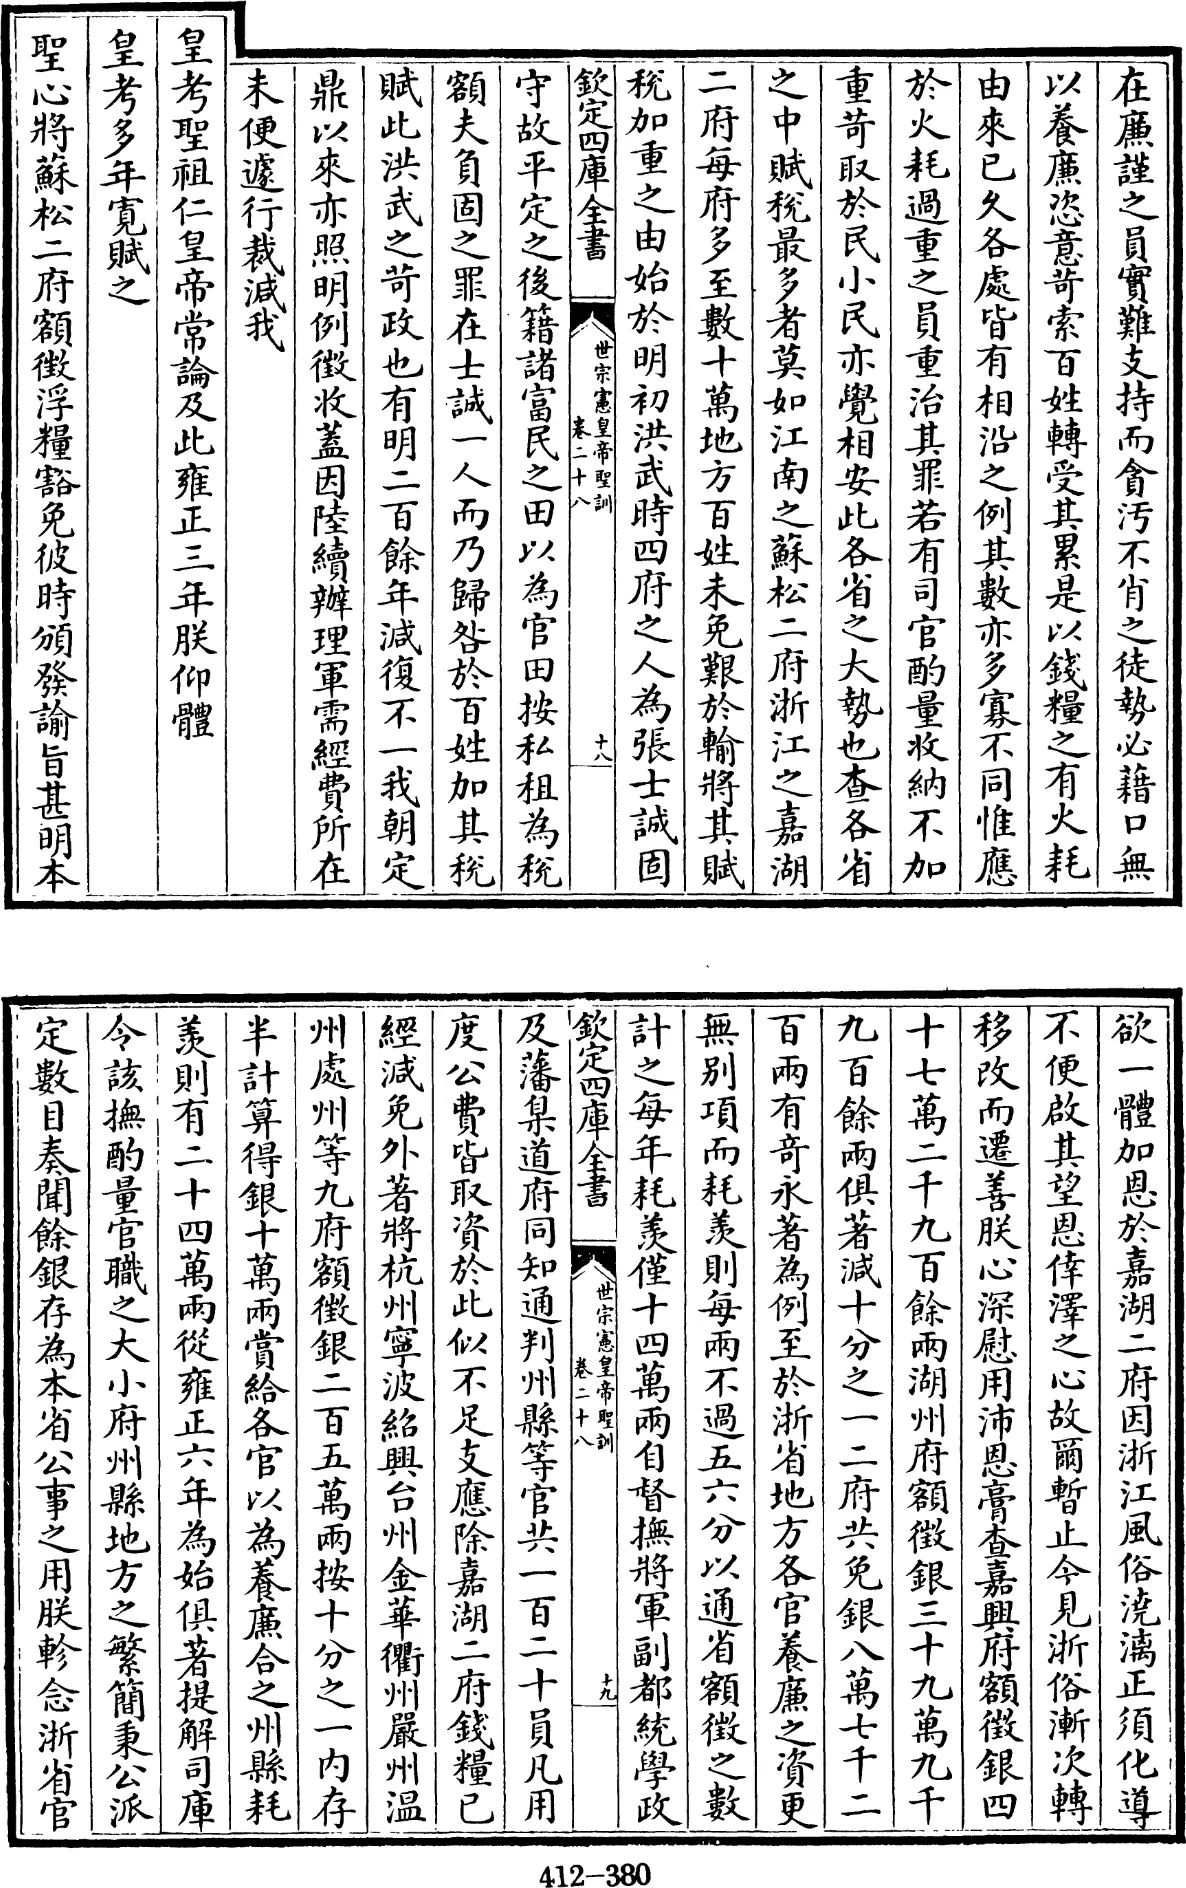 在廉謹之員實難支持而貪汚不肖之徒勢必藉口無
以養廉恣意苛索百姓轉受其累是以錢糧之有火耗
由來已久各處皆有相沿之例其數亦多寡不同惟應
於火耗過重之員重治其罪若有司官酌量收納不加
重苛取於民小民亦覺相安此各省之大勢也查各省
之中賦稅最多者莫如江南之蘇松二府浙江之嘉湖
二府每府多至數十萬地方百姓未免艱於輸將其賦
稅加重之由始於明初洪武時四府之人為張士誠固
欽定四庫全書
世宗憲皇帝聖訓
卷二十八
十八
守故平定之後籍諸富民之田以為官田按私租為稅
額夫負固之罪在士誠一人而乃歸咎於百姓加其稅
賦此洪武之苛政也有明二百餘年減復不一我朝定
鼎以來亦照明例徵收蓋因陸續辦理軍需經費所在
未便遽行裁減我
皇考聖祖仁皇帝常論及此雍正三年朕仰體
皇考多年寛賦之
聖心將蘇松二府額徵浮糧豁免彼時頒發諭旨甚明本
欲一體加恩於嘉湖二府因浙江風俗澆漓正須化導
不便啟其望恩倖澤之心故爾暫止今見浙俗漸次轉
移改而遷善朕心深慰用沛恩膏查嘉興府額徵銀四
十七萬二千九百餘兩湖州府額徵銀三十九萬九千
九百餘兩俱著減十分之一二府共免銀八萬七千二
百兩有奇永著為例至於浙省地方各官養廉之資更
無別項而耗羨則每兩不過五六分以通省額徵之數
計之每年耗羨僅十四萬兩自督撫將軍副都統學政
欽定四庫全書
世宗憲皇帝聖訓
卷二十八
十九
及藩臬道府同知通判州縣等官共一百二十員凡用
度公費皆取資於此似不足支應除嘉湖二府錢糧已
經減免外著將杭州寧波紹興台州金華衢州嚴州溫
州處州等九府額徵銀二百五萬兩按十分之一內存
半計算得銀十萬兩賞給各官以為養廉合之州縣耗
羨則有二十四萬兩從雍正六年為始俱著提解司庫
令該撫酌量官職之大小府州縣地方之繁簡秉公派
定數目奏聞餘銀存為本省公事之用朕軫念浙省官
412-380